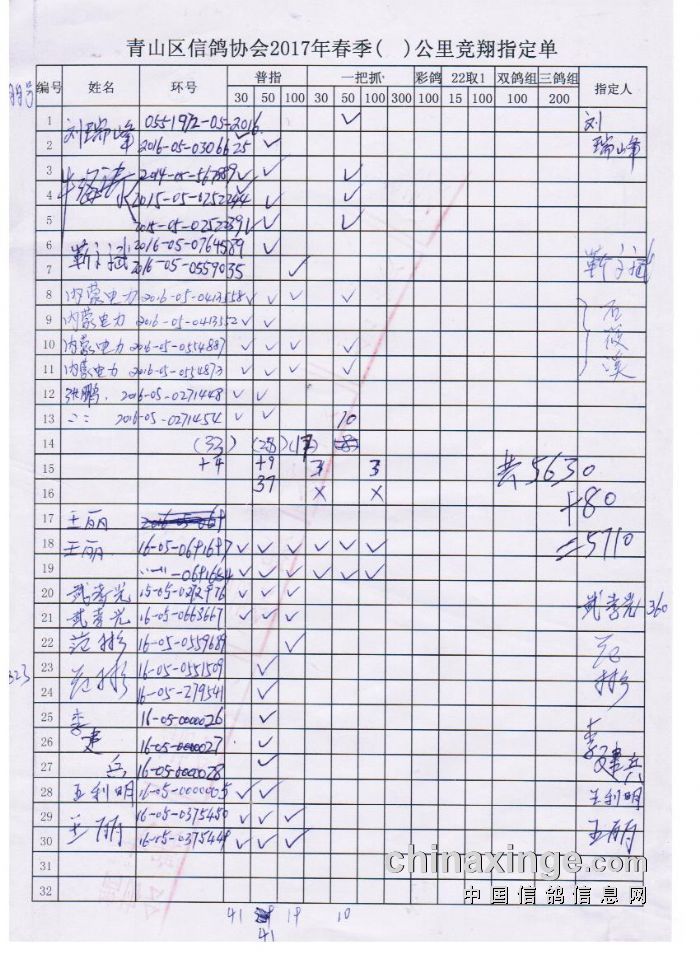 青山区信鸽协会2017年春季( )公里竞翔指定单
编号 姓名 环号 普指 一把抓 彩鸽 22取1 双鸽组 三鸽组 指定人
30 50 100 30 50 100 300 100 15 100 100 200
1 刘瑞峰 2016 ✓ 刘瑞峰
2 2016-05-0306625 ✓ ✓
3 ✓ ✓ ✓
4 2015-05-0252244 ✓ ✓ ✓
5 ✓ ✓ ✓
6 2016-05-0764589 ✓
7 2016-05-0559035 ✓
8 内蒙电力 2016-05-0413558 ✓ ✓ ✓ ✓
9 内蒙电力 2016-05-0413552 ✓ ✓
10 内蒙电力 2016-05-0554887 ✓ ✓ ✓ ✓
11 内蒙电力 2016-05-0554873 ✓ ✓ ✓ ✓
12 张鹏 2016-05-0271448 ✓ ✓
13 2016-05-0271454 ✓ ✓ 10
14 (33) (28)
15 +4 +9 3 3 共5630
16 37 × × +80
17 王丽
18 王丽 16-05-0691697 ✓ ✓ ✓ ✓ ✓ ✓ =5710
19 ✓ ✓ ✓ ✓ ✓ ✓
20 武孝光 15-05-0272976 ✓ ✓ ✓ 武孝光 360
21 武孝光 16-05-0663667 ✓ ✓ ✓
22 范彬 16-05-0559689 ✓ 范彬
23 范彬 16-05-0551509 ✓
24 16-05-279541 ✓
25 李建兵 16-05-0000026 ✓ 李建兵
26 16-05-0000027 ✓
27 16-05-0000028 ✓
28 王利明 16-05-0000005 ✓ ✓ 王利明
29 王丽 16-05-0375450 ✓ ✓ ✓ 王丽
30 16-05-0375449 ✓ ✓ ✓
31
32
41 19 10
41
chinaxinge.com
中国信鸽信息网